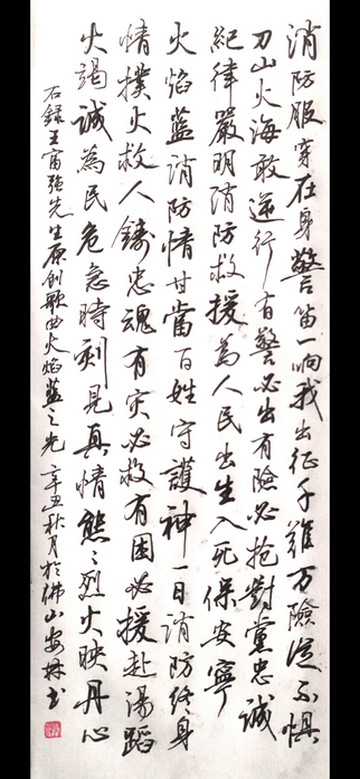 消防服穿在身警笛一响我出征千难万險從不惧
刀山火海敢逆行有警必出有險必抢對黨忠诚
紀律嚴明消防救援為人民出生入死保安寧
火焰蓝消防情甘當百姓守護神一日消防终身
情撲火救人鑄忠魂有灾必救有困必援赴湯蹈
火竭诚為民危急時刻見真情熊〻烈火映丹心
右録王富强先生原创歌曲火焰蓝之光 辛丑秋月於佛山安林书